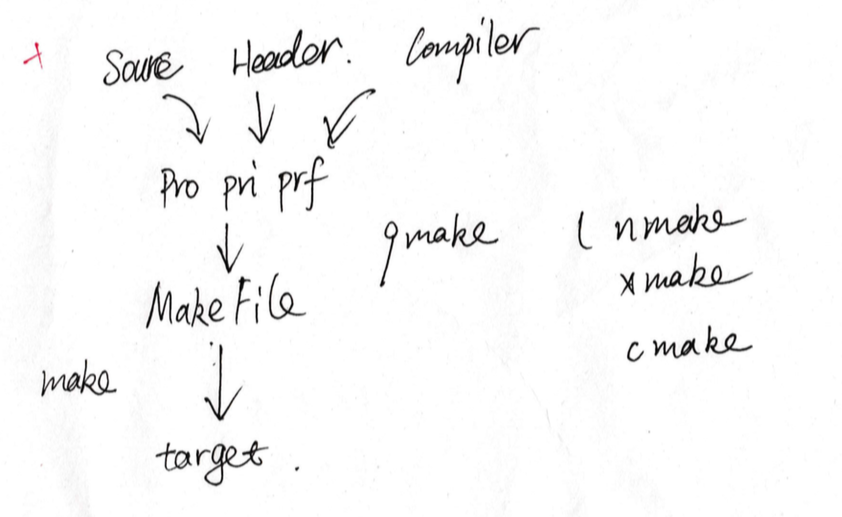 Source Header. Compiler
Pro pri prf
qmake ( nmake
xmake
MakeFile
cmake
make
target.